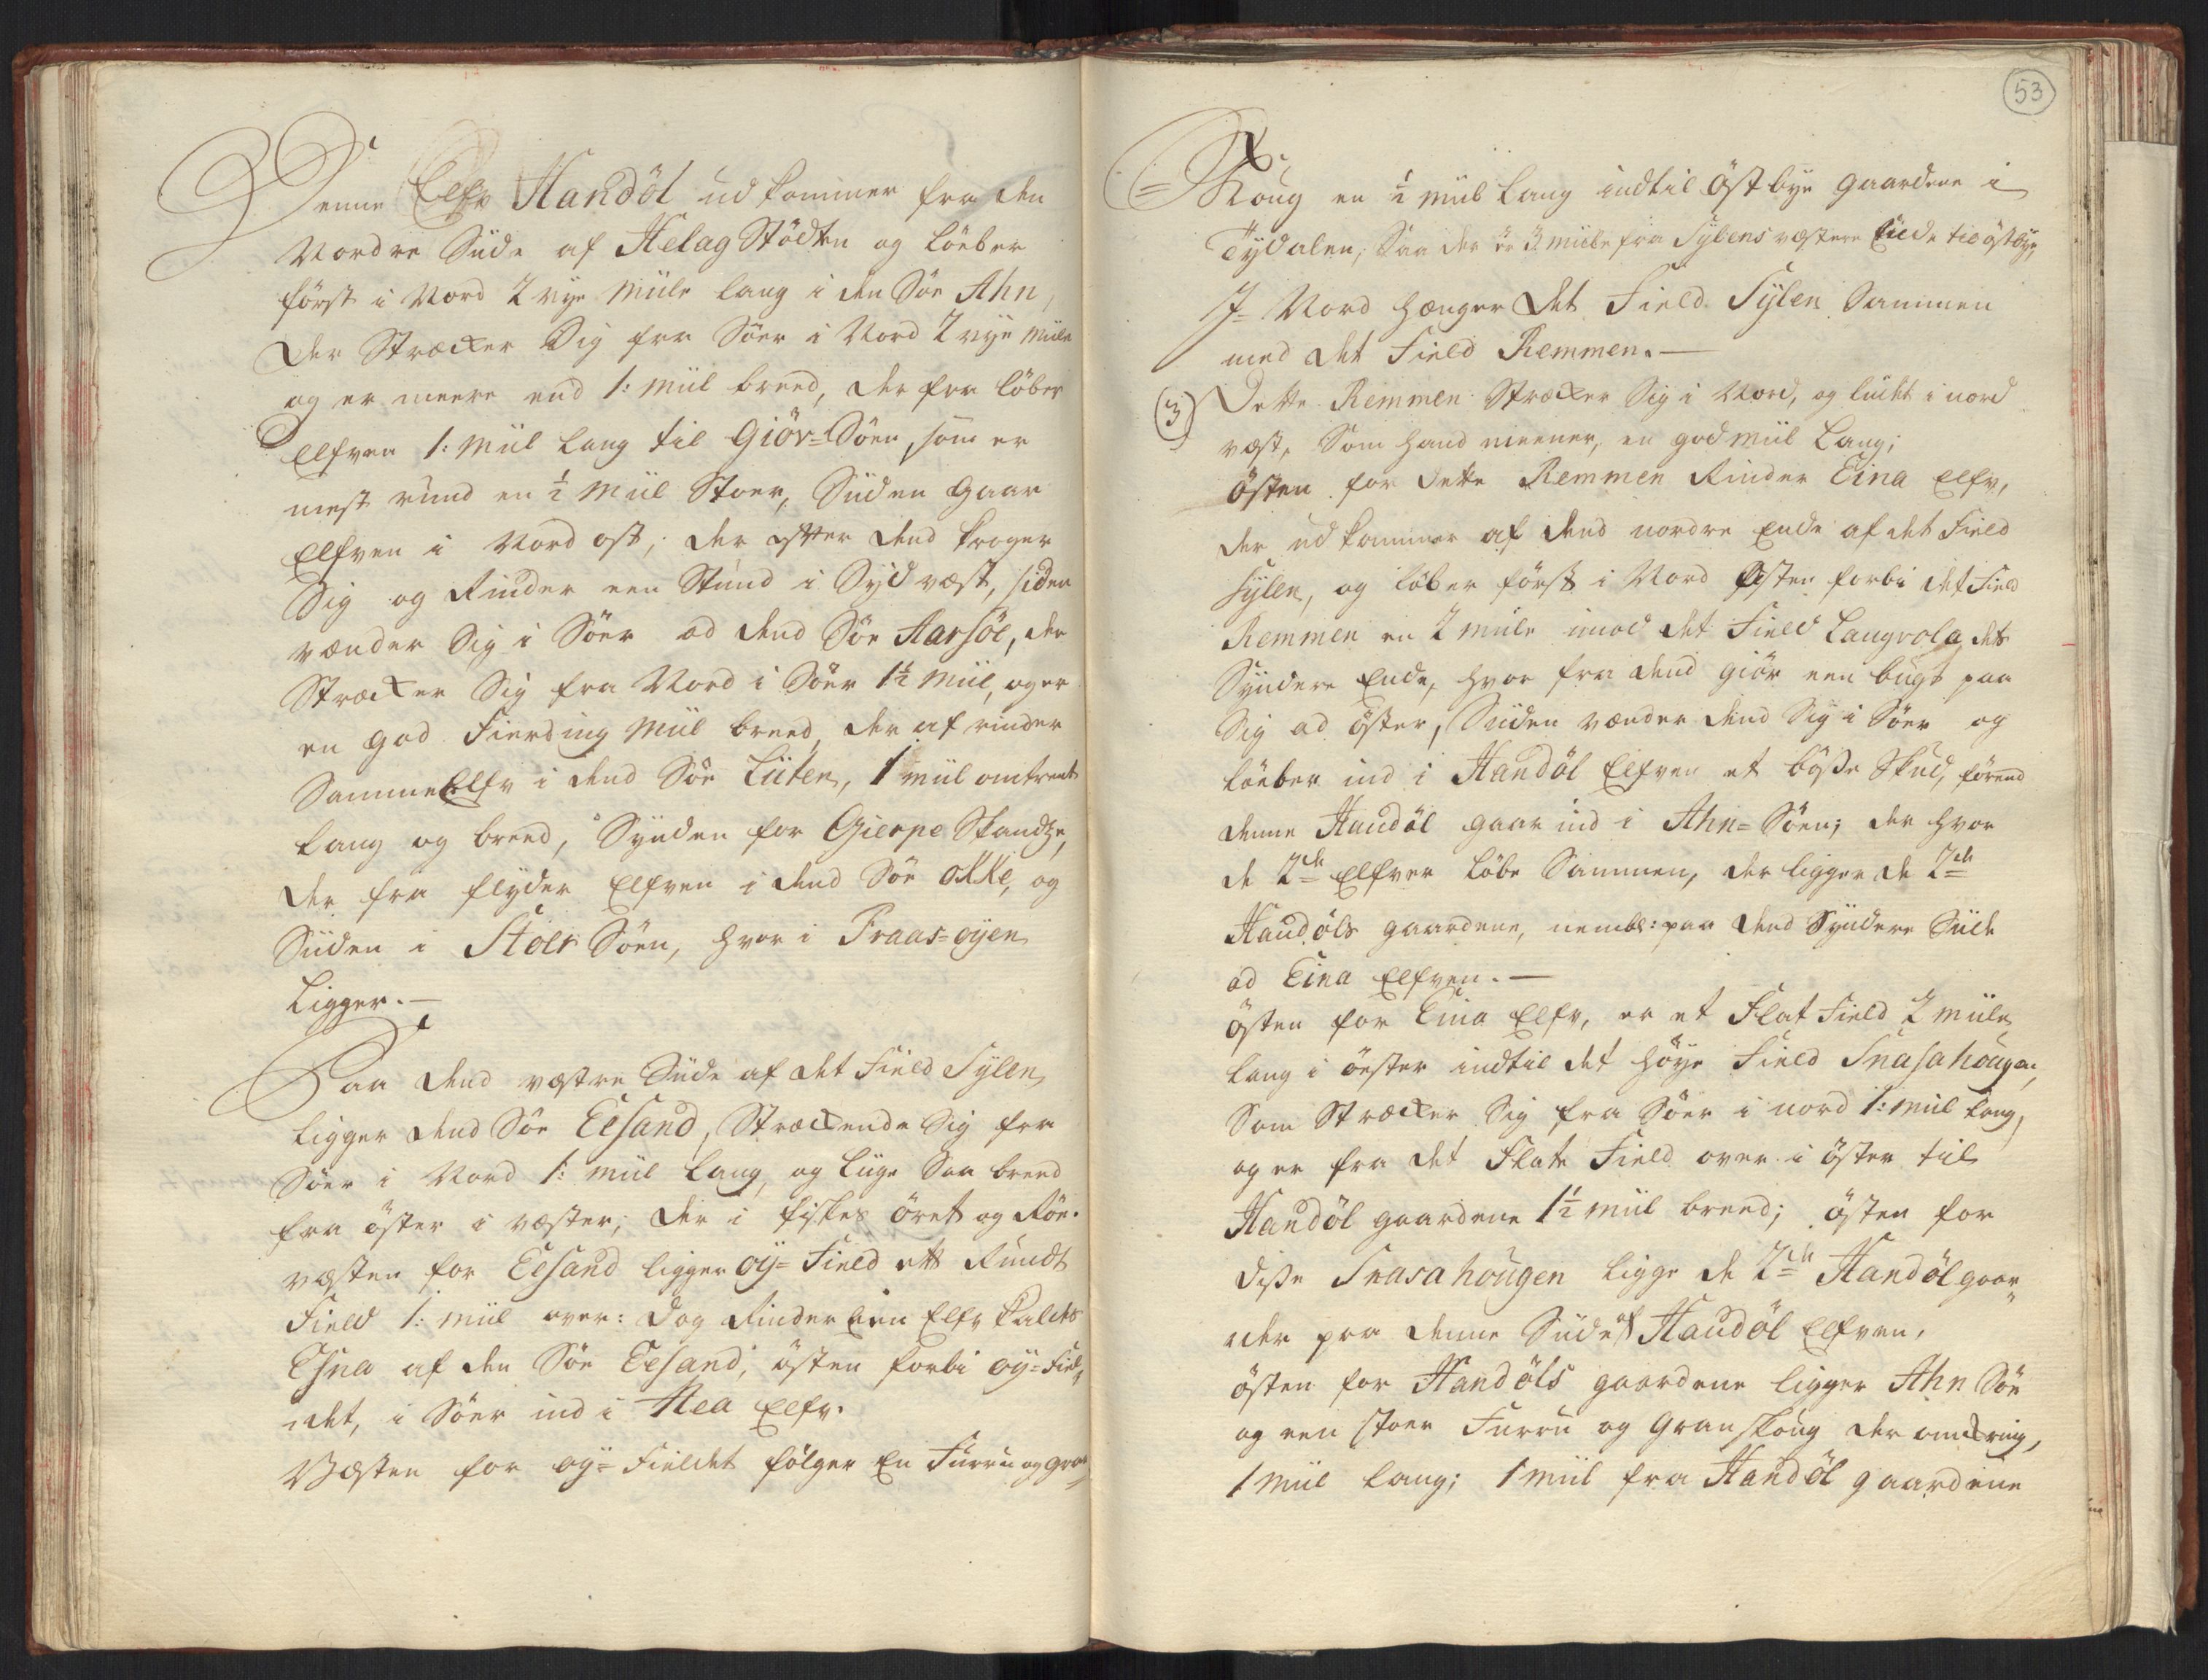 Denne Elfv Handöl udkommer fra den
Nordre Siide af Helag Stödten og löeber
först i Nord 2 nye Miile lang i den Söe Ahn,
der Stræcker Sig fra Söer i Nord 2 nye Miile
og er meere end 1: Miil breed, der fra löber
Elfven 1: Miil lang til Giöv-Söen, som er
mest rund en ½ Miil Stoer, Siiden gaar
Elfven i Nordost; der efter dend kroger
Sig og Rinder een Stund i Sydvæst, siden
vænder Sig i Söer ad dend Söe Aarsöe, der
Stræcker Sig fra Nord i Söer 1½ Miil, og er
en god Fierding Miil breed, der af rinder
Samme Elfv i dend Söe Liiten, 1 Miil omtrent
lang og breed, Synden for Gierpe Skandtze,
der fra flyder Elfven i dend Söe okke, og
Siiden i Stoer Söen, hvor i Fraas-öyen
Ligger.—
Paa dend væstre Siide af det Field Sylen
ligger dend Söe Eesand, Stræckende Sig fra
Söer i Nord 1: Miil lang, og liige Saa breed
fra öster i væster; der i fiskes öret og Röe.
væsten for Eesand ligger öy-Field ett Rundt
Field 1: miil over: dog Rinder een Elfv kaldes
Esna af den Söe Eesand, östen forbi öy-Fiel-
det, i Söer ind i Nea Elfv.
Væsten for öy-Fieldet fölger En Furru og gran
53
Skoug en ½ Miil lang indtil Östbye gaardene i
Tydalen, Saa der er 3 miile fra Sylens væstere Siide til östbye,
I Nord hænger det Field Sylen Sammen
med det Field Remmen.—
3) Dette Remmen Strækker Sig i Nord, og lidet i nord
væst, Som hand meener, en god miil Lang;
Östen for dette Remmen Rinder Eina Elfv,
der udkommer af dend nordre Ende af det Field
Sylen, og löber först i Nord Östen forbi det Field
Remmen en 2 miile imod det Field Langvola dets
Syndere Ende, hvor fra dend giör een bugt paa
Sig ad öster, Siiden vænder dend Sig i Söer og
löeber ind i Handöl Elfven et bösse Skud, förend
denne Handöl gaar ind i Ahn-Söen; der hvor
de 2de Elfver löbe Sammen, der ligger de 2de
Handöls gaardene, nembl: paa dend Syndere Siide
ad Eina Elfven.—
Östen for Eina Elfv, er et Flat Field 2 miile
lang i öester indtil det höye Field Snasahougen,
Som Strækker Sig fra Söer i nord 1: miil lang,
og er fra det Flate Field over i öster til
Handöl gaardene 1½ miil breed; östen for
disse Snasahougen ligge de 2de Handöl gaar-
der paa denne Siide af Handöl Elfven,
östen for Handöls gaardene ligger Ahn Söe
og een stoer Furru og Granskoug der omkring,
1 Miil lang; 1 miil fra Handöl gaardene